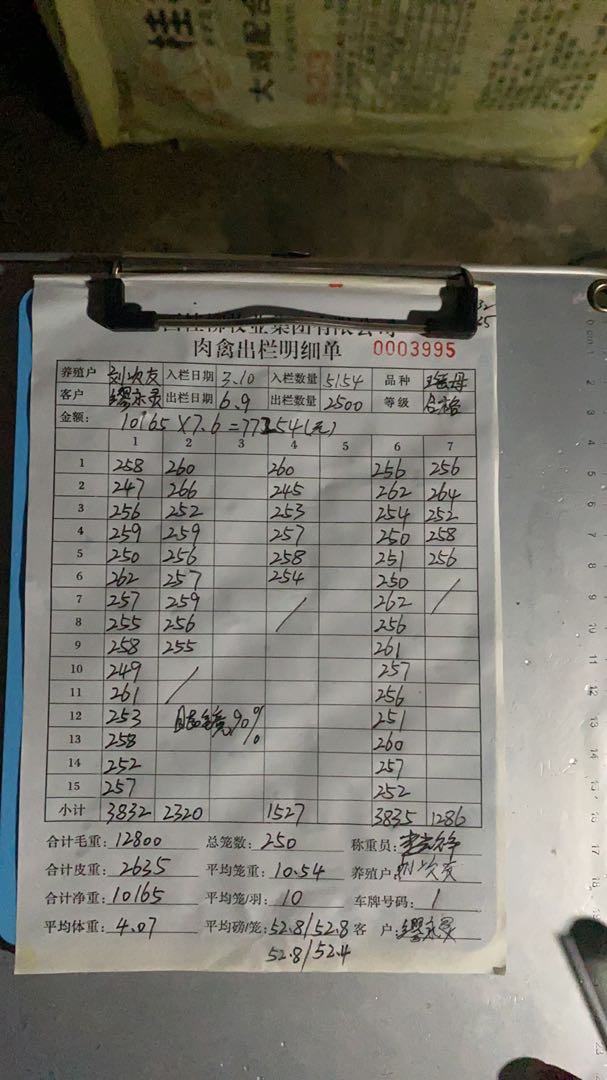 桂
大鸡配合
桂柳牧业集团有限公司
肉禽出栏明细单 0003995
养殖户 刘次友 入栏日期 3.10 入栏数量 5154 品种 瑶母
客户 缪永灵 出栏日期 6.9 出栏数量 2500 等级 合格
金额: 10165×7.6=77254(元)
1 2 3 4 5 6 7
1 258 260 260 256 256
2 247 266 245 262 264
3 256 252 253 254 252
4 259 259 257 250 258
5 250 256 258 251 256
6 262 257 254 250
7 257 259 / 262 /
8 255 256 256
9 258 255 261
10 249 / 257
11 261 256
12 253 90% 251
13 258 260
14 252 257
15 257 252
小计 3832 2320 1527 3835 1286
合计毛重: 12800 总笼数: 250 称重员:
合计皮重: 2635 平均笼重: 10.54 养殖户: 刘次友
合计净重: 10165 平均笼/羽: 10 车牌号码: 1
平均体重: 4.07 平均磅/笼: 52.8/52.8 客户: 缪永灵
52.8/52.4